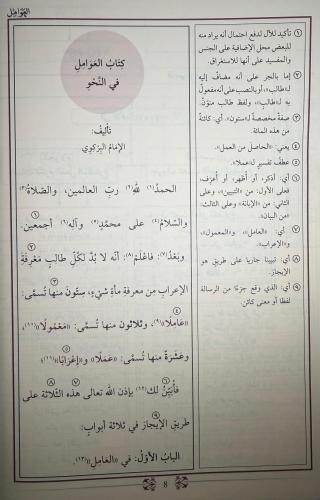 العَوَامِل
كِتَابُ العَوَامِلِ
في النَّحْوِ
تأليفُ:
الإمَامُ البِرْكَوِي
الحمدُ(١) للهِ(٢) ربِّ العالمين، والصَّلاةُ(٣)
والسَّلامُ(٤) على محمَّدٍ(٥) وآلِهِ(٦) أجمعين.
①
وبَعْدُ(٧): فاعْلَمْ(٨): أنَّه لا بُدَّ لكُلِّ طالبِ مَعْرِفَةِ
② ③
الإعرابِ مِن معرفةِ مائةِ شَيْءٍ، سِتُّونَ منها تُسمَّى:
④
«عَامِلًا»(٩)، وثَلاثون منها تُسمَّى: «مَعْمُولًا»(١٠)،
⑤
وعَشَرَةٌ منها تُسمَّى: «عَمَلًا» و«إِعْرَابًا»(١١)؛
⑥ ⑦ ⑧
فأُبَيِّنُ لك(١٢) بإذن الله تعالى هذه الثَّلاثةَ على
⑨
طريقِ الإيجازِ في ثلاثةِ أبوابٍ:
البابُ الأوَّلُ: في «العَامِلِ»(١٣).
① تأكيد للآل لدفع احتمال أنه يراد منه
للبعض محل الإضافية على الجنس
والمفسد على أنها للاستغراق.
② إما بالجر على أنه مضاف إليه
لـ«طالب»، أو بالنصب على أنه مفعول
به لـ«طالب»، ولفظ طالب منوّن.
③ صفة مخصصة لـ«ستون»، أي: كائنة
من هذه المائة
④ يعني: «الحاصل من العمل».
⑤ عطف تفسير لـ«عملا».
⑥ أي: أذكر، أو أظهر، أو أعرّف،
فعلى الأول: من «التبيين»، وعلى
الثاني: من «الإبانة» وعلى الثالث:
من «البيان».
⑦ أي: «العامل»، و«المعمول»،
و«الإعراب».
⑧ أي: تبيينا جاريا على طريق هو
الإيجاز.
⑨ أي: الذي وقع جزءًا من الرسالة
لفظا أو معنى كائن.
8